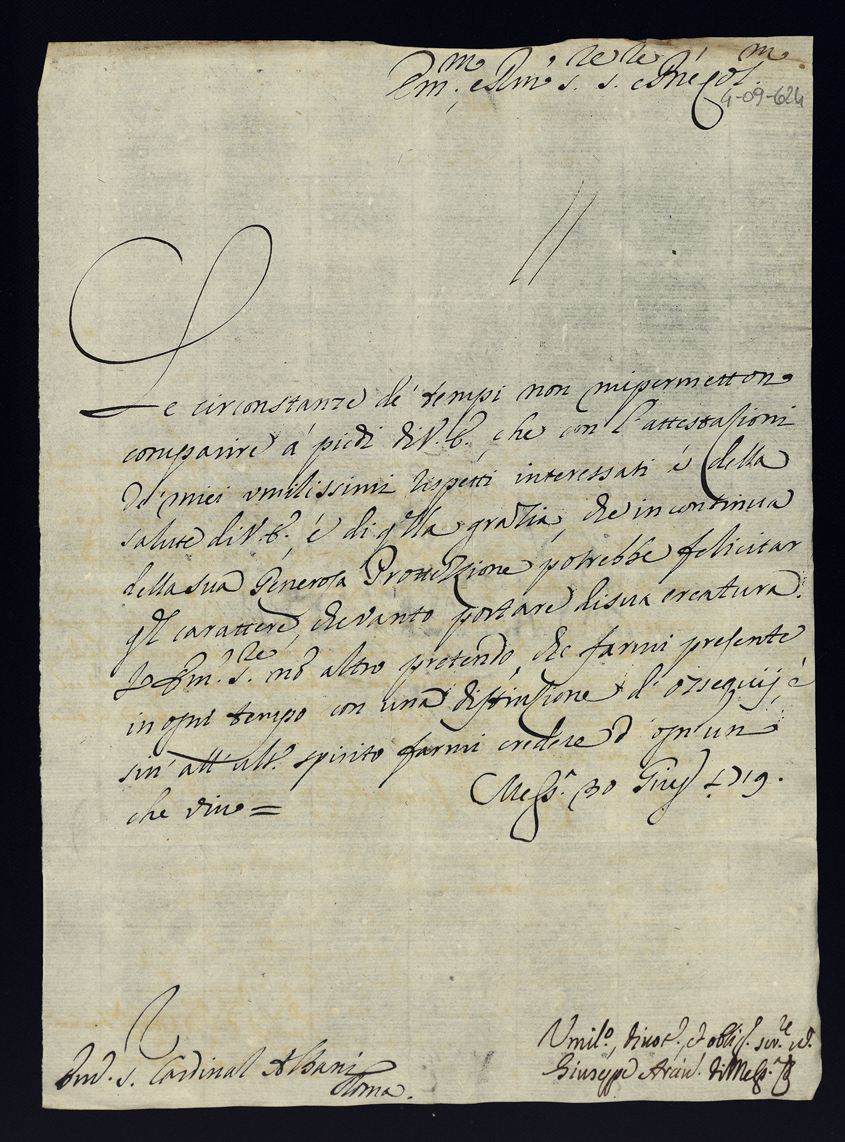 Em.mo e Rm.o S.re S.re e Prñe Col.mo
4-09-624
Le circonstanze de' tempi non mi permetton
comparire a' piedi di V. E. che con l'attestazioni
de' miei umilissimi rispetti interessati é della
salute di V. E. é di q.lla grazia, che in continua
della sua Generosa Protezzione potrebbe felicitar
q.l carattere, che vanto portare di sua creatura.
Em. S.re nõ altro pretendo, che farmi presente
in ogni tempo con una distinzione d'ossequij, é
sin' all' ult.o spirito farmi credere d' ogn' un
che vivo =
Mess.a 30 Giug. 1719.
Em. S. Cardinal Albani
Roma.
Umil.o, divot., et obblig. ser.re ve.
Giuseppe Arciv. di Mess.a